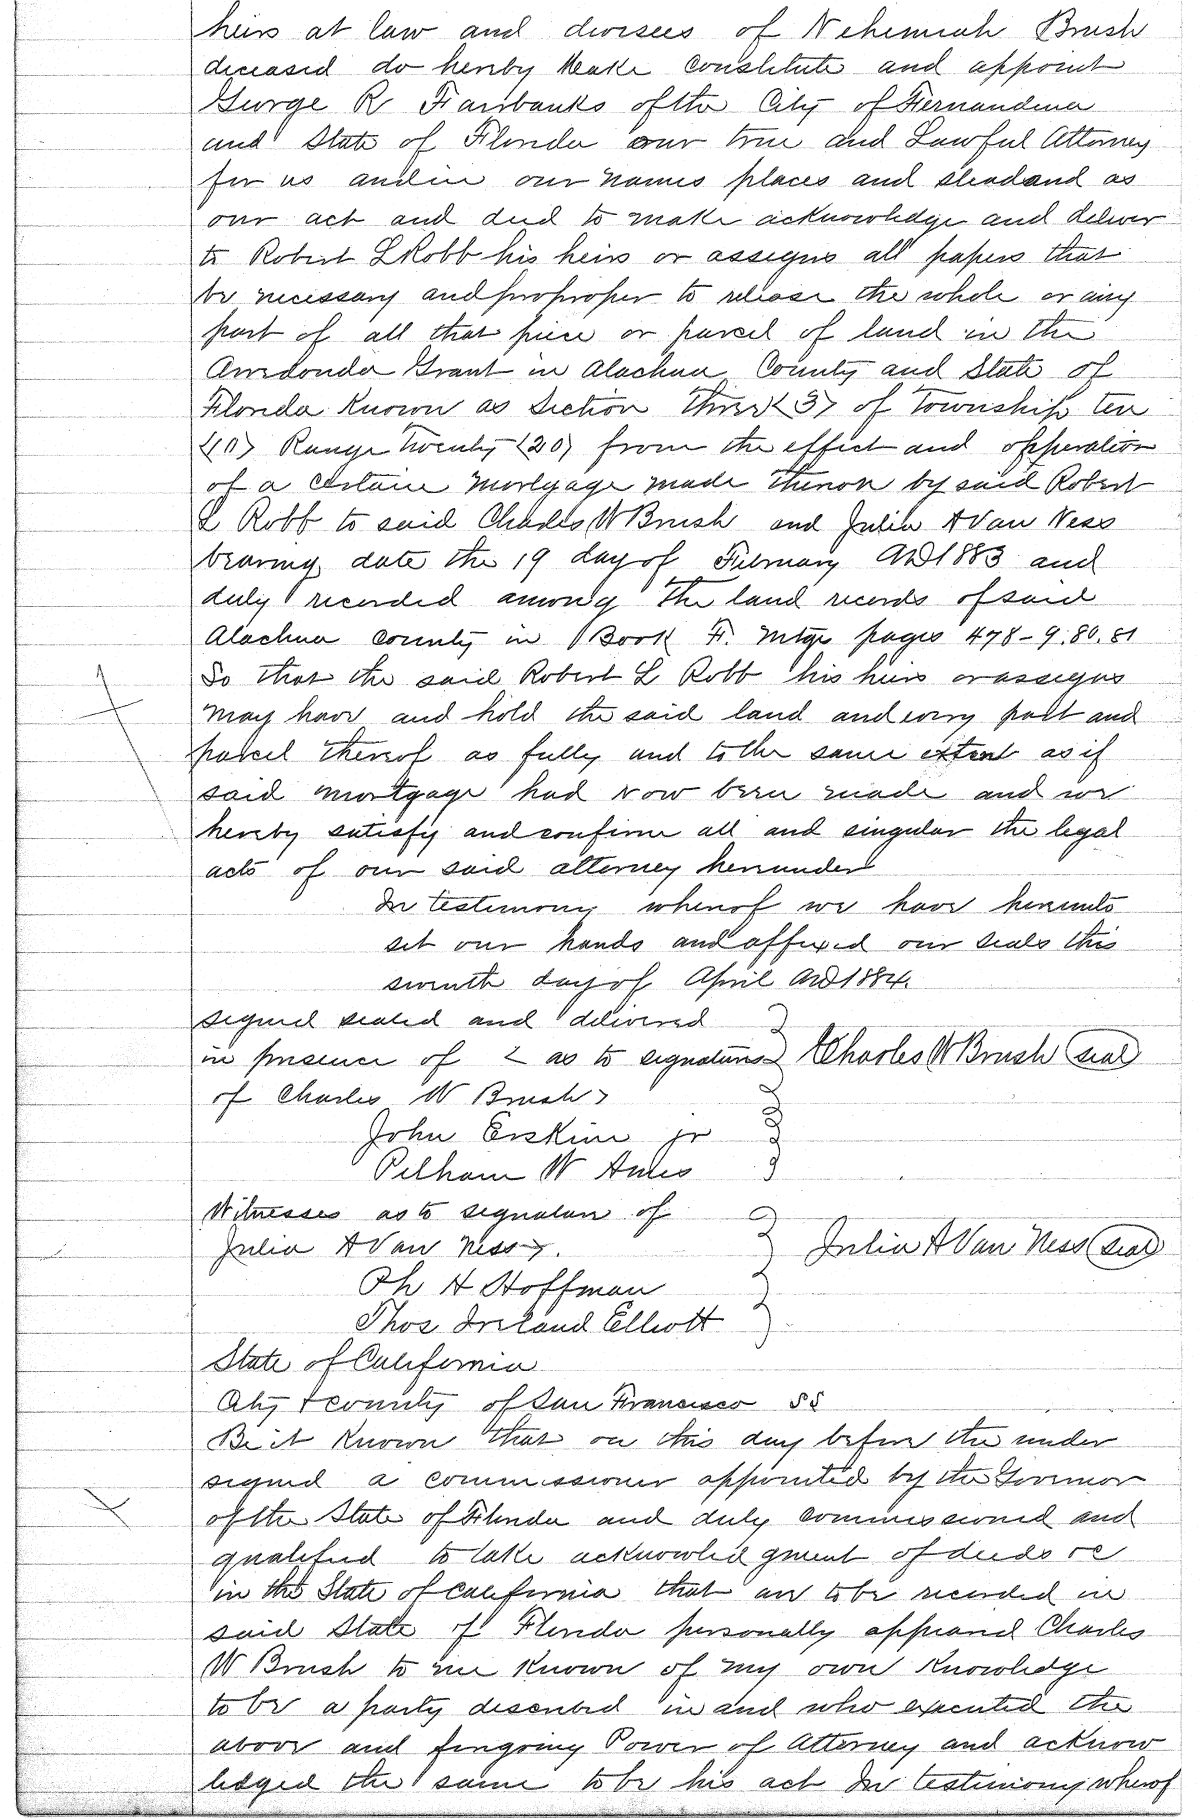 heirs at law and devisees of Nehemiah Brush
deceased do hereby Make Constitute and appoint
George R Fairbanks of the City of Fernandina
and State of Florida our true and Lawful Attorney
for us and in our names places and stead and as
our act and deed to make acknowledge and deliver
to Robert L Robb his heirs or assigns all papers that
be necessary and proproper to release the whole or any
part of all that piece or parcel of land in the
Arredondo Grant in Alachua County and State of
Florida Known as Section Three (3) of Township ten
(10) Range Twenty (20) from the effect and opperation
of a certain Mortgage made thereon by said Robert
L Robb to said Charles W Brush and Julia A Van Ness
bearing date the 19 day of February AD 1883 and
duly recorded among the land records of said
Alachua County in Book F. Mtgs pages 478-9.80.81
So that the said Robert L Robb his heirs or assigns
May have and hold the said land and every part and
parcel thereof as fully and to the same extent as if
said mortgage had now been made and we
hereby satisfy and confirm all and singular the legal
acts of our said attorney hereunder
In testimony whereof we have hereunto
set our hands and affixed our seals this
seventh day of April AD 1884.
signed sealed and delivered
in presence of ( as to signatures Charles W Brush (seal)
of Charles W Brush)
John Erskine jr
Pelham W Ames
Witnesses as to signature of
Julia A Van Ness). Julia A Van Ness (seal)
Ph H Hoffman
Thos Ireland Elliott
State of California
City & County of San Francisco SS
Be it Known that on this day before the under
signed a commissioner appointed by the Governor
of the State of Florida and duly commissioned and
qualified to take acknowledgment of deeds &c
in the State of California that are to be recorded in
said State of Florida personally appeared Charles
W Brush to me Known of my own Knowledge
to be a party described in and who executed the
above and foregoing Power of Attorney and acknow
ledged the same to be his act In testimony whereof